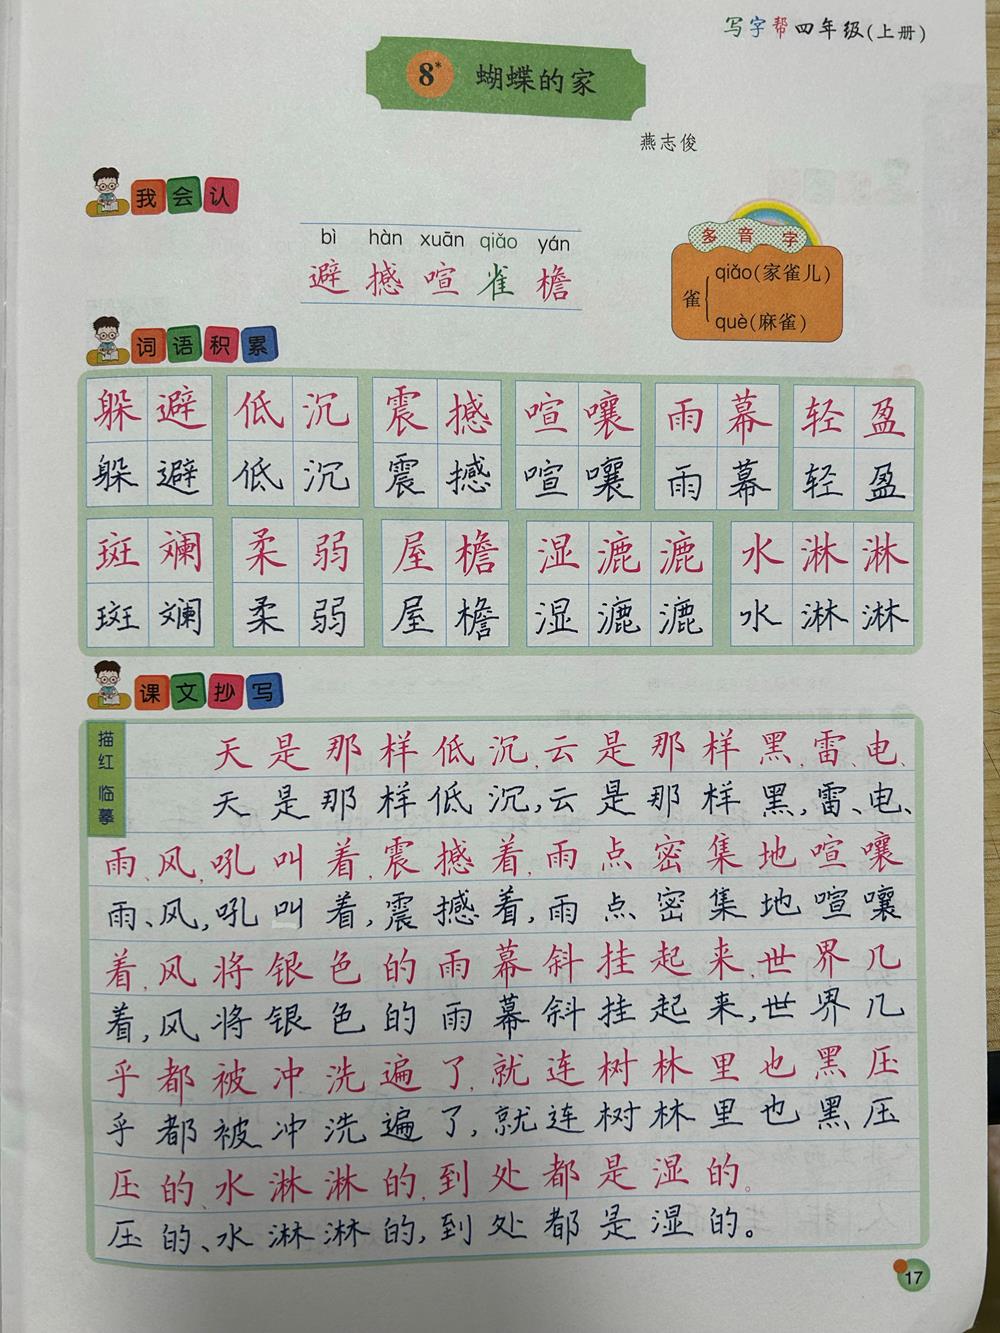 写字帮四年级(上册)
8* 蝴蝶的家
燕志俊
我会认
bì hàn xuān qiǎo yán
避 撼 喧 雀 檐
多音字
雀
qiǎo(家雀儿)
què(麻雀)
词语积累
躲避 低沉 震撼 喧嚷 雨幕 轻盈
躲避 低沉 震撼 喧嚷 雨幕 轻盈
斑斓 柔弱 屋檐 湿漉漉 水淋淋
斑斓 柔弱 屋檐 湿漉漉 水淋淋
课文抄写
描红 临摹
天是那样低沉,云是那样黑,雷、电、
天是那样低沉,云是那样黑,雷、电、
雨、风,吼叫着,震撼着,雨点密集地喧嚷
雨、风,吼叫着,震撼着,雨点密集地喧嚷
着,风将银色的雨幕斜挂起来,世界几
着,风将银色的雨幕斜挂起来,世界几
乎都被冲洗遍了,就连树林里也黑压
乎都被冲洗遍了,就连树林里也黑压
压的、水淋淋的,到处都是湿的。
压的、水淋淋的,到处都是湿的。
17